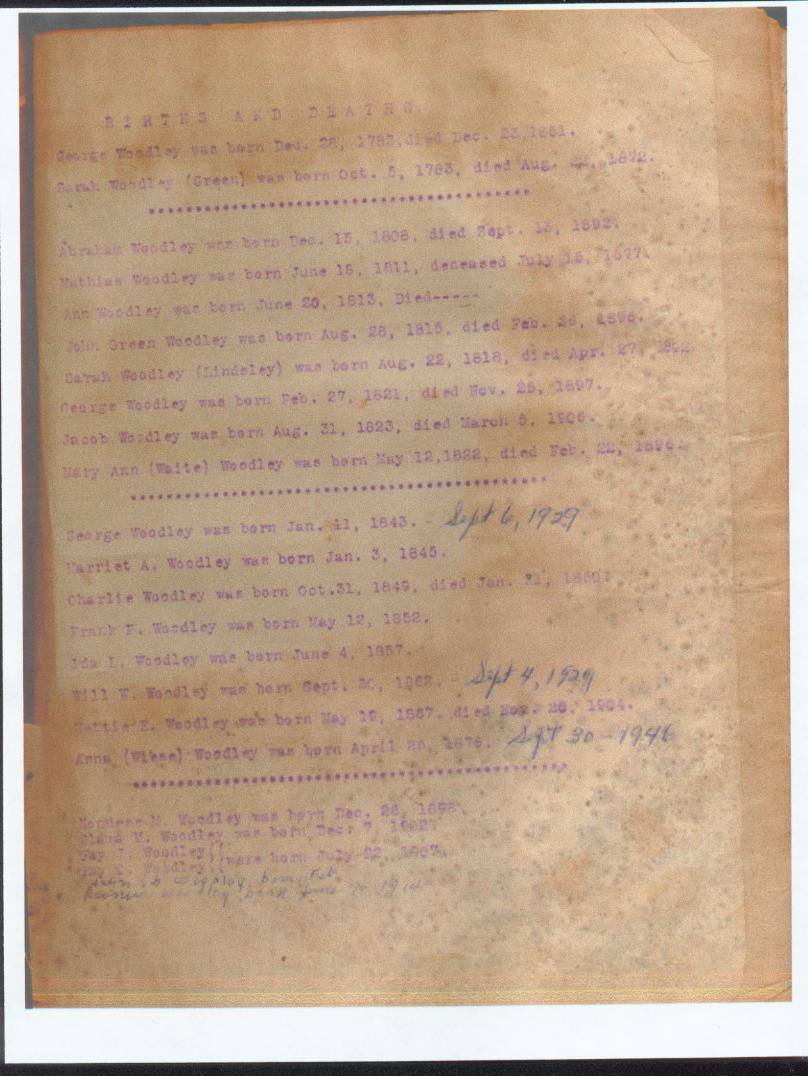 BIRTHS AND DEATHS.
George Woodley was born Dec. 28, 1782,died Dec. 23,1851.
Sarah Woodley (Green) was born Oct. 5, 1783, died Aug. 22, 1872.
Abraham Woodley was born Dec. 15, 1808, died Sept. 13, 1892.
Mathias Woodley was born June 18, 1811, deceased July 18, 1877.
Ann Woodley was born June 20, 1813, Died-----
John Green Woodley was born Aug. 28, 1815, died Feb. 26, 1898.
Sarah Woodley (Lindsley) was born Aug. 22, 1818, died Apr. 27,
George Woodley was born Feb. 27, 1821, died Nov. 25, 1897.
Jacob Woodley was born Aug. 31, 1823, died March 5, 1906.
Mary Ann (Waite) Woodley was born May 12,1822, died Feb. 22, 1896.
George Woodley was born Jan. 11, 1843. - Sept 6, 1929
Harriet A. Woodley was born Jan. 3, 1845.
Charlie Woodley was born Oct.31, 1849, died Jan. 31, 1850.
Frank F. Woodley was born May 12, 1852.
Ida L. Woodley was born June 4, 1857.
Will W. Woodley was born Sept. 30, 1862. - Sept 4, 1929
E. Woodley was born May 19, 1867. died Nov. 26, 1904.
Anna (Wiese) Woodley was born April 25, 1876. Sept 30 - 1946
M. Woodley was born Dec. 26, 1898.
M. Woodley was born Dec. 7, 1902.
Woodley
were born July 22, 1907.
Woodley
born Feb
born June 1914